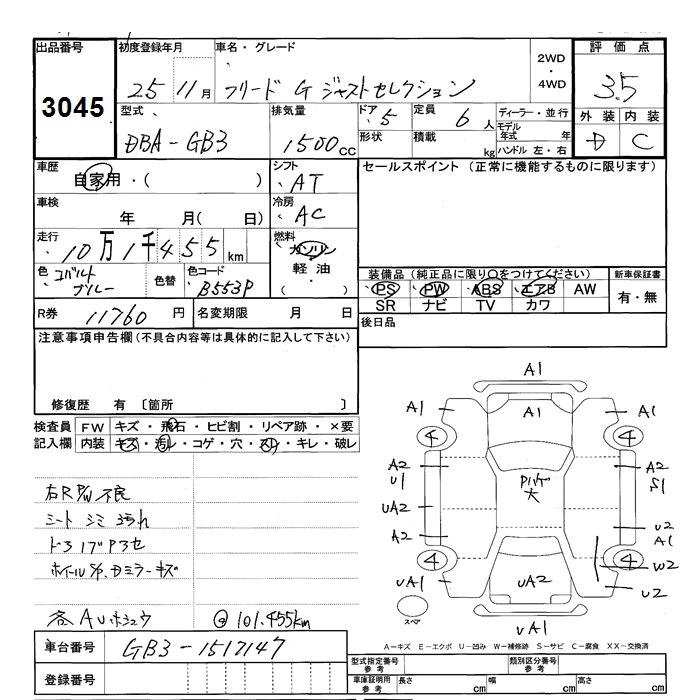 出品番号
3045
初度登録年月
25 11月
車名・グレード
フリード G ジャストセレクション
2WD
・
4WD
評価点
3.5
外装 内装
D C
型式
DBA-GB3
排気量
1500cc
ドア 5
形状
定員 6人
積載 kg
ディーラー・並行
モデル年式 年
ハンドル 左・右
車歴
自家用・( )
シフト
AT
セールスポイント (正常に機能するものに限ります)
車検
年 月( 日)
冷房
AC
走行
10万1千455km
燃料
ガソリン
軽油
( )
色
コバルトブルー
色替
色コード
B553P
装備品 (純正品に限り○をつけてください)
PS PW ABS エアB AW
SR ナビ TV カワ
新車保証書
有・無
R券 11760円
名変期限 月 日
後日品
注意事項申告欄(不具合内容等は具体的に記入して下さい)
修復歴 有 〔箇所 〕
検査員記入欄
FW キズ・飛石・ヒビ割・リペア跡・×要
内装 キズ・汚れ・コゲ・穴・スレ・キレ・破レ
右R P/W 不良
シート シミ 汚れ
ホイールキズ、ドミラーキズ
各AUホシュウ
@101.455km
A1
A1 A1 A1
4 4
A2 U1
A2 S1
UA2
A2
U2 A1
W2
4 4
UA1 UA2 U2
UA1
大
スペア
A-キズ E-エクボ U-凹み W-補修跡 S-サビ C-腐食 XX-交換済
車台番号
GB3-1517147
登録番号
型式指定番号 参考
類別区分番号 参考
車庫証明用 参考
長さ cm
幅 cm
高さ cm